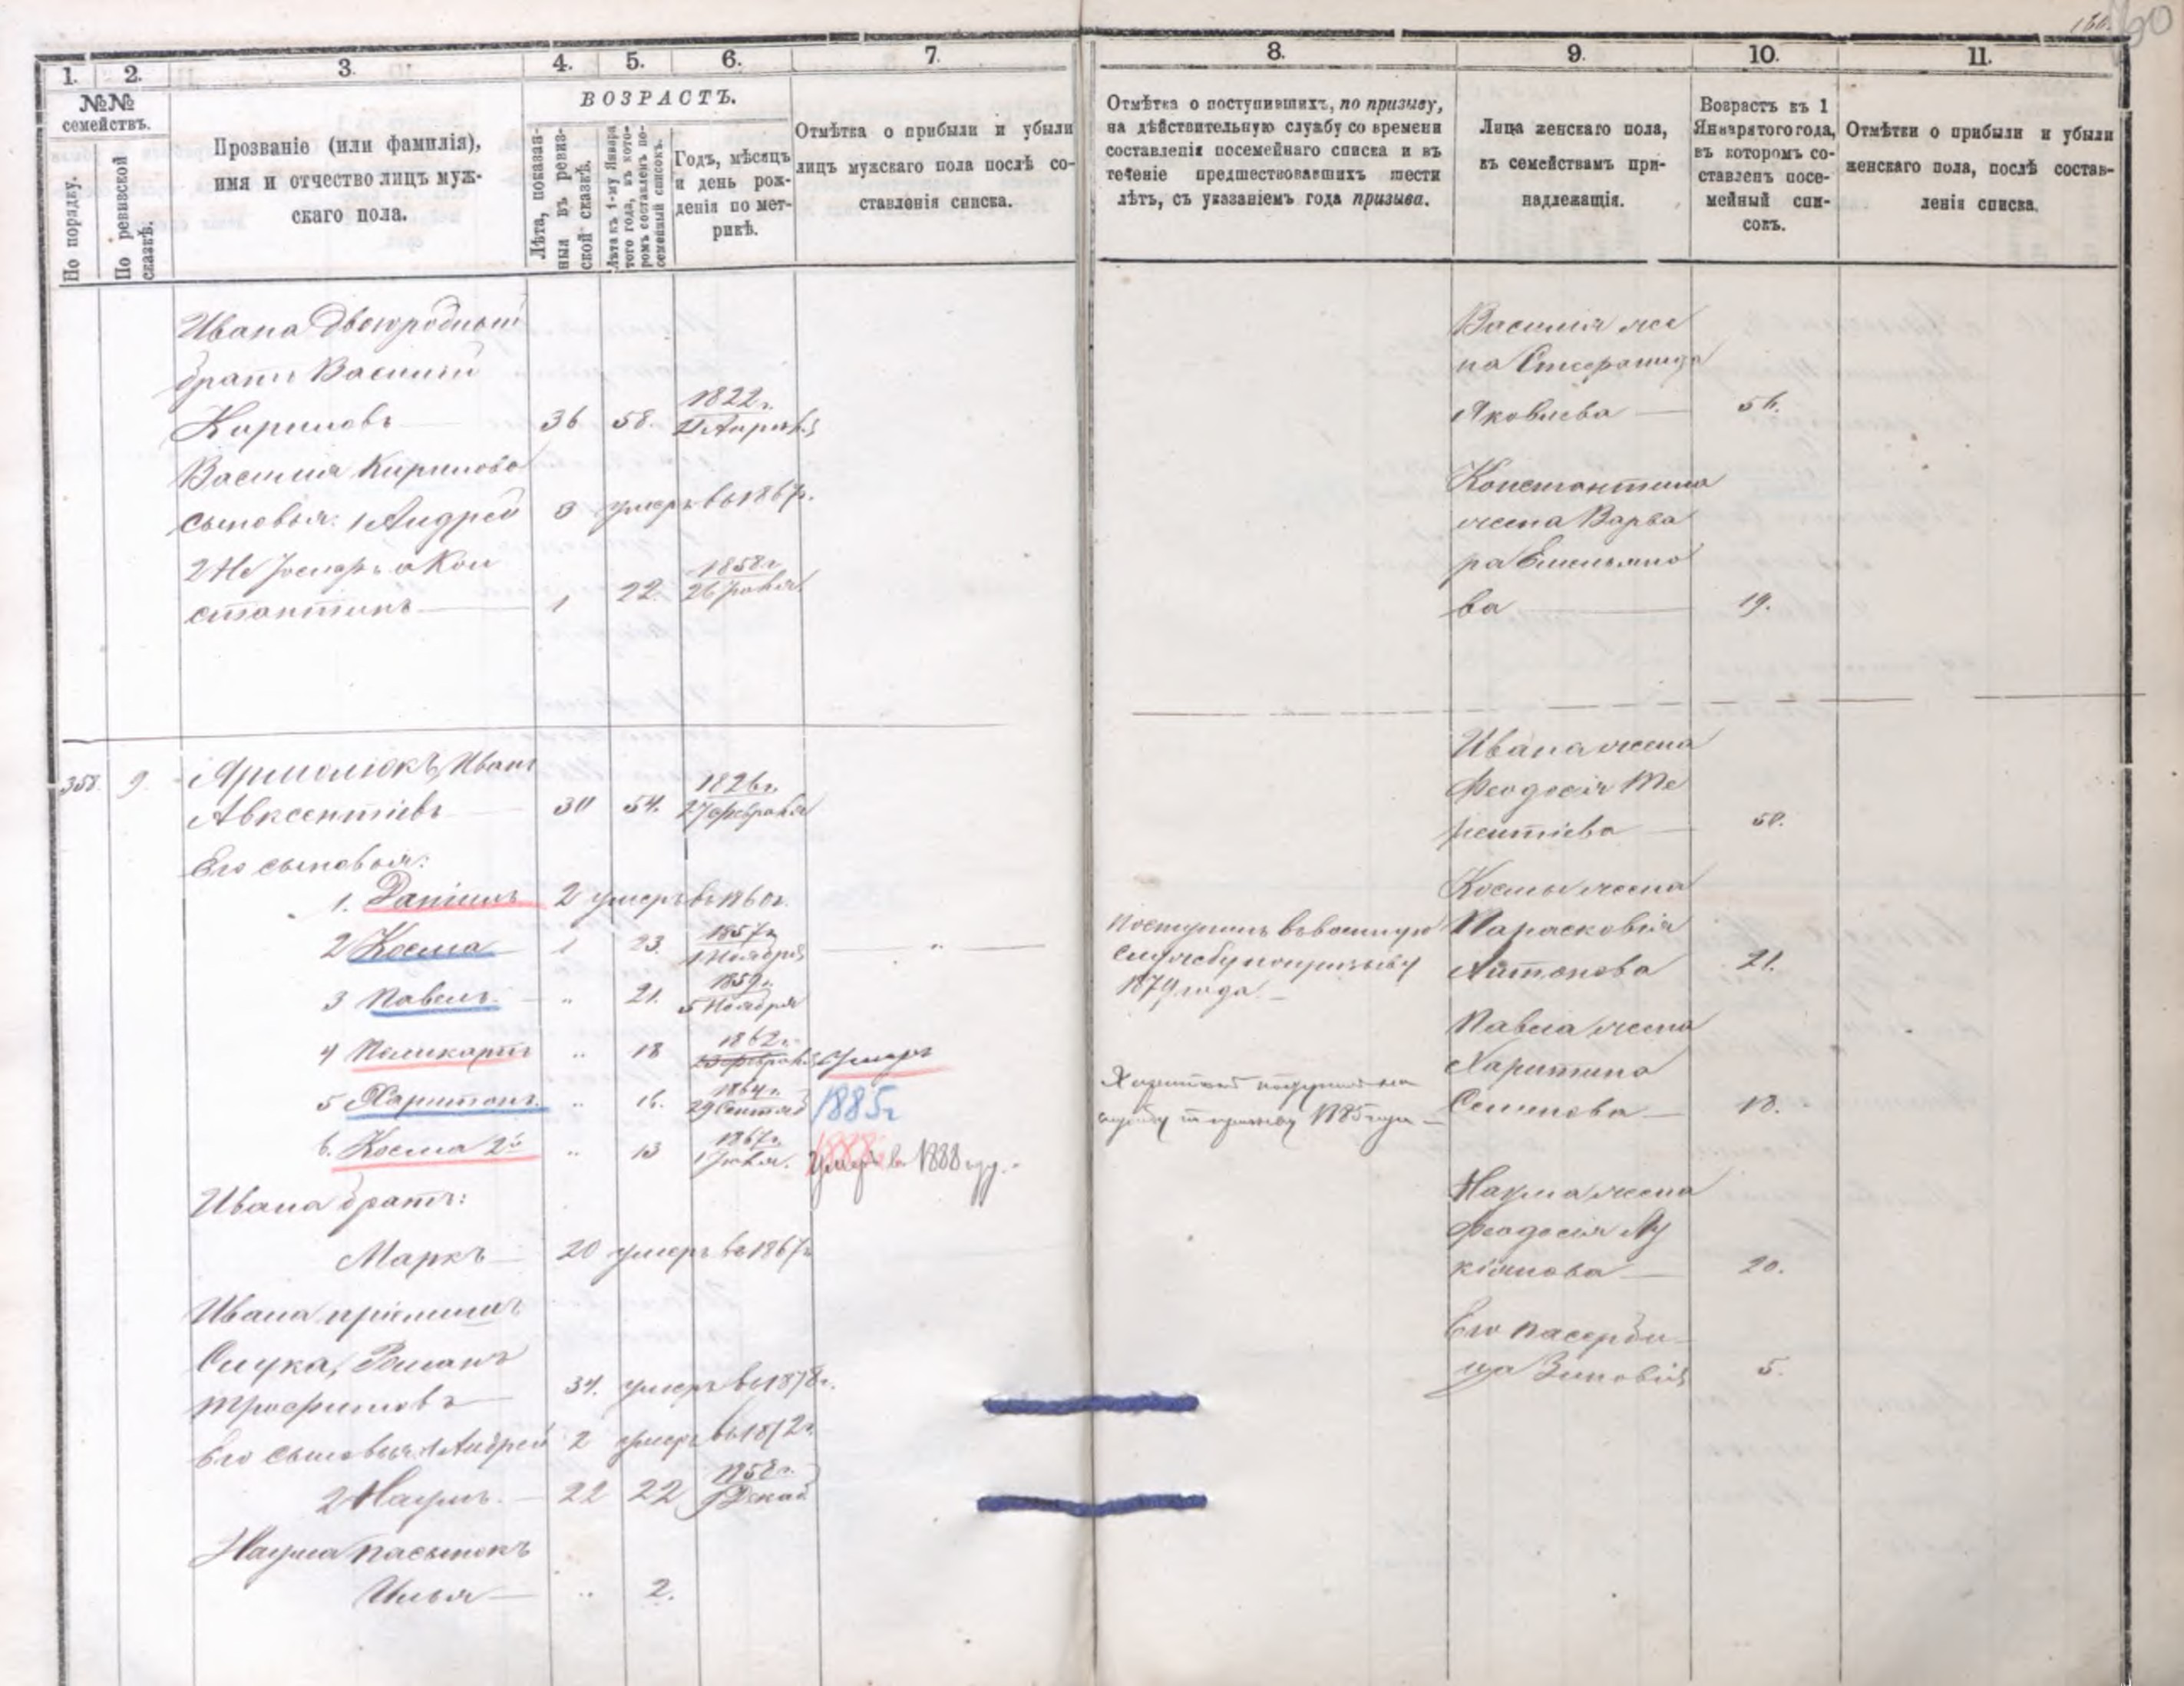 1.
2.
3.
4.
5.
6.
7.
№№
семействъ.
По порядку.
По ревизской
сказкѣ.
Прозваніе (или фамилія),
имя и отчество лицъ муж-
скаго пола.
ВОЗРАСТЪ.
Лѣта, показан-
ныя въ ревиз-
ской сказкѣ.
Лѣта къ 1-му Января
того года, въ кото-
ромъ составленъ по-
семейный списокъ.
Годъ, мѣсяцъ
и день рож-
денія по мет-
рикѣ.
Отмѣтка о прибыли и убыли
лицъ мужскаго пола послѣ со-
ставленія списка.
Ивана двоюродный
братъ Василій
Кириловъ 36 58. 1822 г.
Апрѣля
Василія Кирилова
сыновья: 1 Андрей 3 умеръ въ 1867 г.
2 Не Гоноръ а Кон
стантинъ 1 22. 1858 г.
26
358. 9. Ярмолюкъ, Иванъ
Авксентіевъ 30 54. 1826 г.
27 февраля
Его сыновья:
1. Даніилъ 2 умеръ въ 1860 г.
2 Косма 1 23. 1857 г.
1 Ноября „
3 Павелъ. „ 21. 1859 г.
5 Ноября
4 Поликарпъ „ 18 1862 г.
февраля умеръ
5 Харитонъ. „ 16. 1864 г.
29 Сентяб 1885 г
6. Косма 2й „ 13 1867 г.
1 умеръ в 1888 году.
Ивана братъ:
Маркъ 20 умеръ въ 1867 г
Ивана пріемышъ
Слука, Романъ
Трофимовъ 34. умеръ въ 1878 г.
Его сыновья: 1 Андрей 2 умеръ въ 1872 г.
2 Наумъ. 22 22 1858 г.
Декаб
Наума пасынокъ
Илья „ 2.
60
8.
9.
10.
11.
Отмѣтка о поступившихъ, по призыву,
на дѣйствительную службу со времени
составленія посемейнаго списка и въ
теченіе предшествовавшихъ шести
лѣтъ, съ указаніемъ года призыва.
Лица женскаго пола,
къ семействамъ при-
надлежащія.
Возрастъ къ 1
Января того года,
въ которомъ со-
ставленъ посе-
мейный спи-
сокъ.
Отмѣтки о прибыли и убыли
женскаго пола, послѣ состав-
ленія списка.
Василія же
на Стефанида
Яковлева 56.
Константина
жена Варва
ра Емельяно
ва 19.
Ивана жена
Феодосія Те
рентіева 50.
Космы жена
Поступилъ въ военную
службу по призыву
1879 года.
Парасковія
Антонова 21.
Павла жена
Харитина
Семенова 18.
Харитонъ поступилъ на
службу въ призыву 1885 года
Наума жена
Феодосія Лу
кіянова 20.
Его пасерби
ца Зиновія 5.